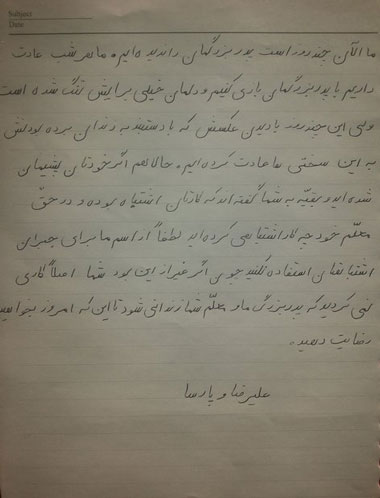 Subject
Date
ما الآن چند روز است پدربزرگمان را ندیده ایم. ما هر شب عادت
داریم با پدربزرگمان بازی کنیم و دلمان خیلی برایش تنگ شده است
ولی این چند روز با دیدن عکسش که با دستبند به زندان برده بودنش
به این سختی ها عادت کرده ایم. حالا هم اگر خودتان پشیمان
شده اید و بقیه به شما گفته اند که کارتان اشتباه بوده و در حقّ
معلّم خود چه کار اشتباهی کرده اید لطفاً از اسم ما برای جبران
اشتباهتان استفاده نکنید چون اگر غیر از این بود شما اصلاً کاری
نمی کردید که پدربزرگ ما و معلّم شما زندانی شود تا این که امروز بخواهید
رضایت دهید.
علیرضا و پارسا